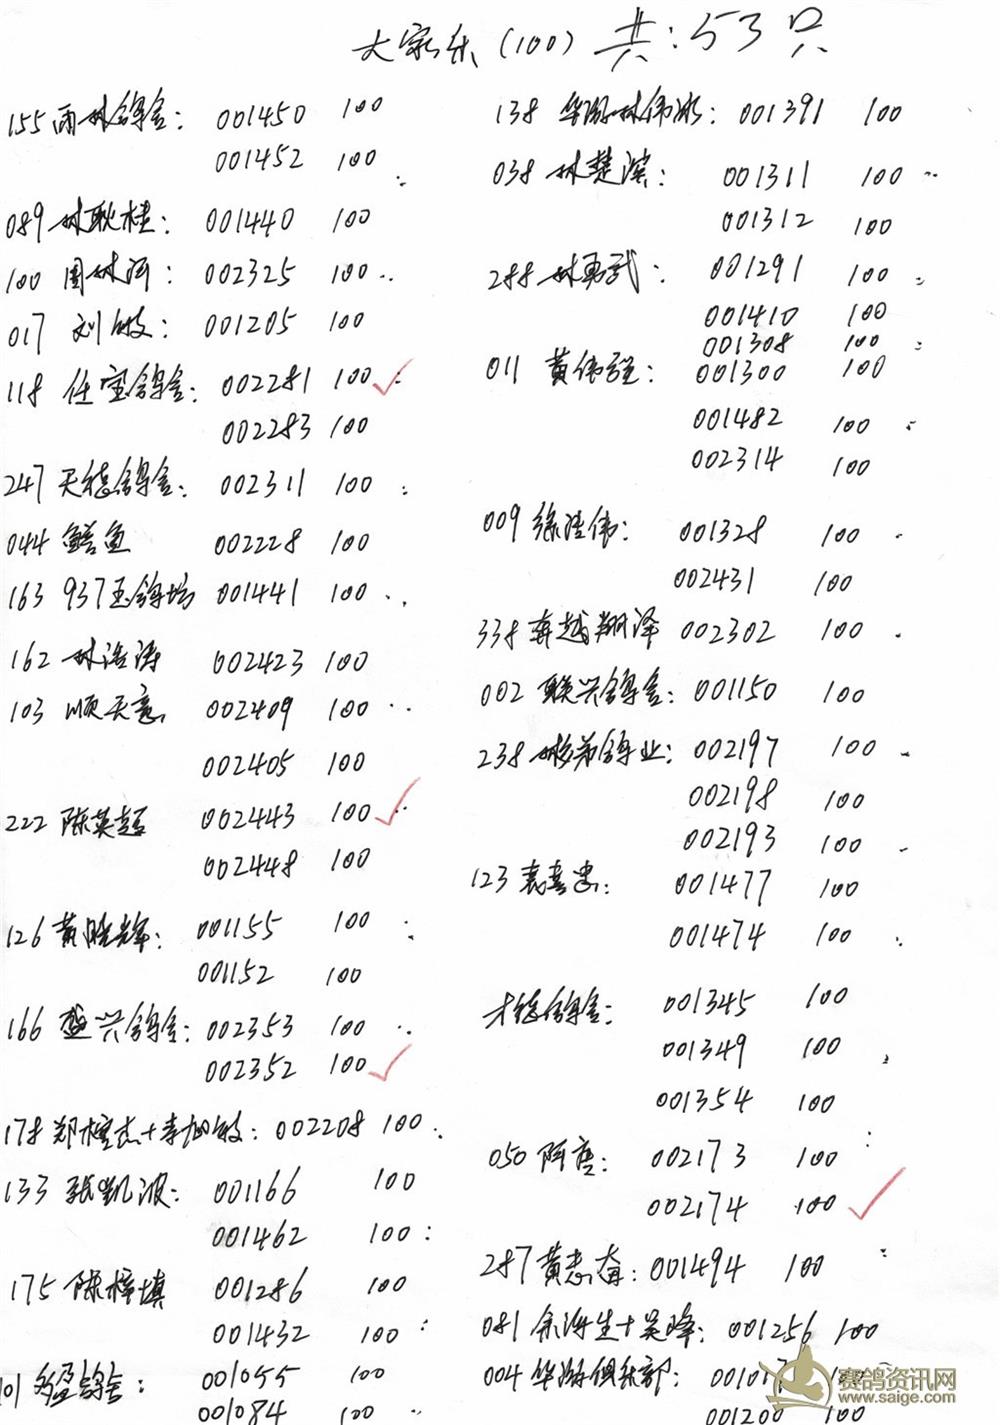 大家乐(100) 共:53只
155 雨林鸽舍: 001450 100
001452 100
089 林耿桂: 001440 100
100 周林河: 002325 100
017 刘敏: 001205 100
118 任宝鸽舍: 002281 100
002283 100
247 天德鸽舍: 002311 100
044 鳝鱼 002228 100
163 937玉鸽坊 001441 100
162 林浩涛 002423 100
103 顺天意 002409 100
002405 100
222 陈英超 002443 100
002448 100
126 黄晓辉: 001155 100
001152 100
166 盛兴鸽舍: 002353 100
002352 100
178 郑杰+李旭敏: 002208 100
133 张凯波: 001166 100
001462 100
175 陈梓填 001286 100
001432 100
101 多盈鸽舍: 001055 100
001084 100
138 华游林伟冰: 001391 100
038 林楚滨: 001311 100
001312 100
288 林勇武: 001291 100
001410 100
001308 100
011 黄伟强: 001300 100
001482 100
002314 100
009 徐洁伟: 001328 100
002431 100
338 奔越翔泽 002302 100
002 联兴鸽舍: 001150 100
238 彬弟鸽业: 002197 100
002198 100
002193 100
123 袁喜忠: 001477 100
001474 100
才德鸽舍: 001345 100
001349 100
001354 100
050 阿唐: 002173 100
002174 100
287 黄志奋: 001494 100
081 余海生+吴峰: 001256 100
004 华游俱乐部: 100
001200 100
赛鸽资讯网
www.saige.com